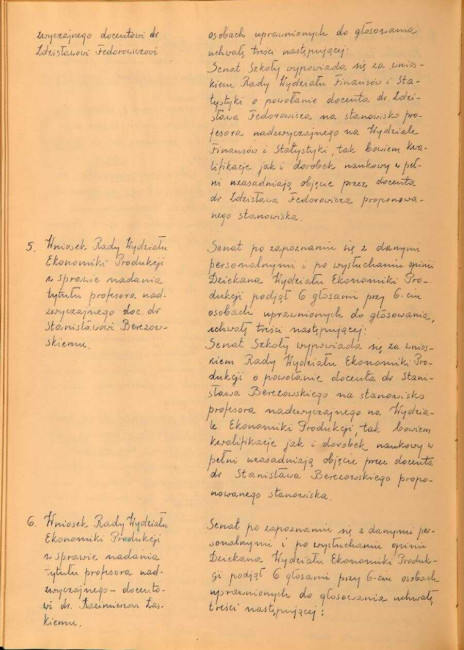 zwyczajnego docentowi dr
Zdzisławowi Fedorowiczowi
osobach uprawnionych do głosowania
uchwałę treści następującej:
Senat Szkoły wypowiada się za wnios-
kiem Rady Wydziału Finansów i Sta-
tystyki o powołanie docenta dr Zdzi-
sława Fedorowicza na stanowisko pro-
fesora nadzwyczajnego na Wydziale
Finansów i Statystyki, tak bowiem kwa-
lifikacje jak i dorobek naukowy w peł-
ni uzasadniają objęcie przez docenta
dr Zdzisława Fedorowicza proponowa-
nego stanowiska.
5. Wniosek Rady Wydziału
Ekonomiki Produkcji
w sprawie nadania
tytułu profesora nad-
zwyczajnego doc. dr
Stanisławowi Berezow-
skiemu.
Senat po zapoznaniu się z danymi
personalnymi i po wysłuchaniu opinii
Dziekana Wydziału Ekonomiki Pro-
dukcji podjął 6 głosami przy 6-ciu
osobach uprawnionych do głosowania,
uchwałę treści następującej:
Senat Szkoły wypowiada się za wnios-
kiem Rady Wydziału Ekonomiki Pro-
dukcji o powołanie docenta dr Stani-
sława Berezowskiego na stanowisko
profesora nadzwyczajnego na Wydzia-
le Ekonomiki Produkcji tak bowiem
kwalifikacje jak i dorobek naukowy w
pełni uzasadniają objęcie przez docenta
dr Stanisława Berezowskiego propo-
nowanego stanowiska.
6. Wniosek Rady Wydziału
Ekonomiki Produkcji
w sprawie nadania
tytułu profesora nad-
zwyczajnego - docento-
wi dr. Kazimierzowi Las-
kiemu.
Senat po zapoznaniu się z danymi per-
sonalnymi i po wysłuchaniu opinii
Dziekana Wydziału Ekonomiki Produk-
cji podjął 6 głosami przy 6-ciu osobach
uprawnionych do głosowania uchwałę
treści następującej: